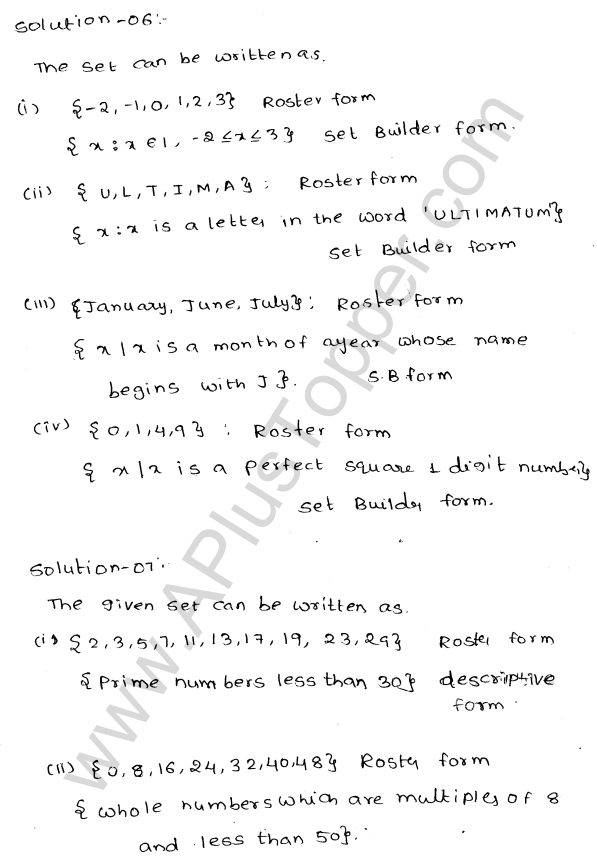 Solution-06:-
The set can be written as.
(i) {-2, -1, 0, 1, 2, 3} Roster form
{ x : x ∈ I, -2 ≤ x ≤ 3 } set Builder form.
(ii) { U, L, T, I, M, A } : Roster form
{ x : x is a letter in the word 'ULTIMATUM}
set Builder form
(iii) {January, June, July} : Roster form
{ x | x is a month of a year whose name
begins with J }. S.B form
(iv) { 0, 1, 4, 9 } : Roster form
{ x | x is a perfect square 1 digit number}
set Builder form.
Solution-07:-
The given set can be written as.
(i) { 2, 3, 5, 7, 11, 13, 17, 19, 23, 29} Roster form
{ Prime numbers less than 30} descriptive
form.
(ii) {0, 8, 16, 24, 32, 40, 48} Roster form
{ whole numbers which are multiples of 8
and less than 50}.
www.APlusTopper.com